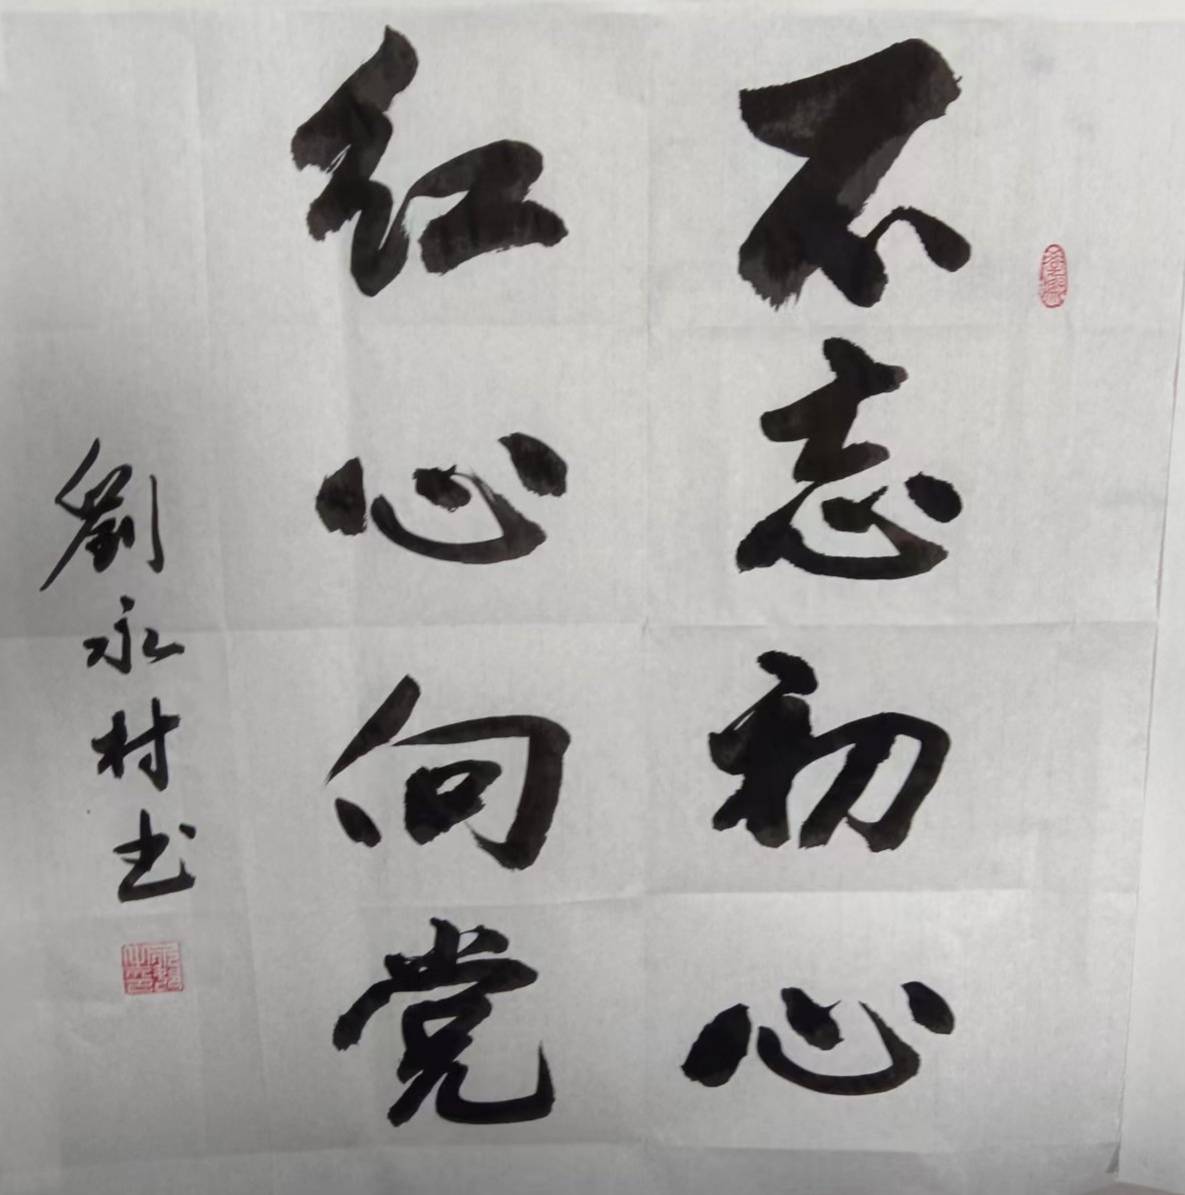 不忘初心
红心向党
劉永村书